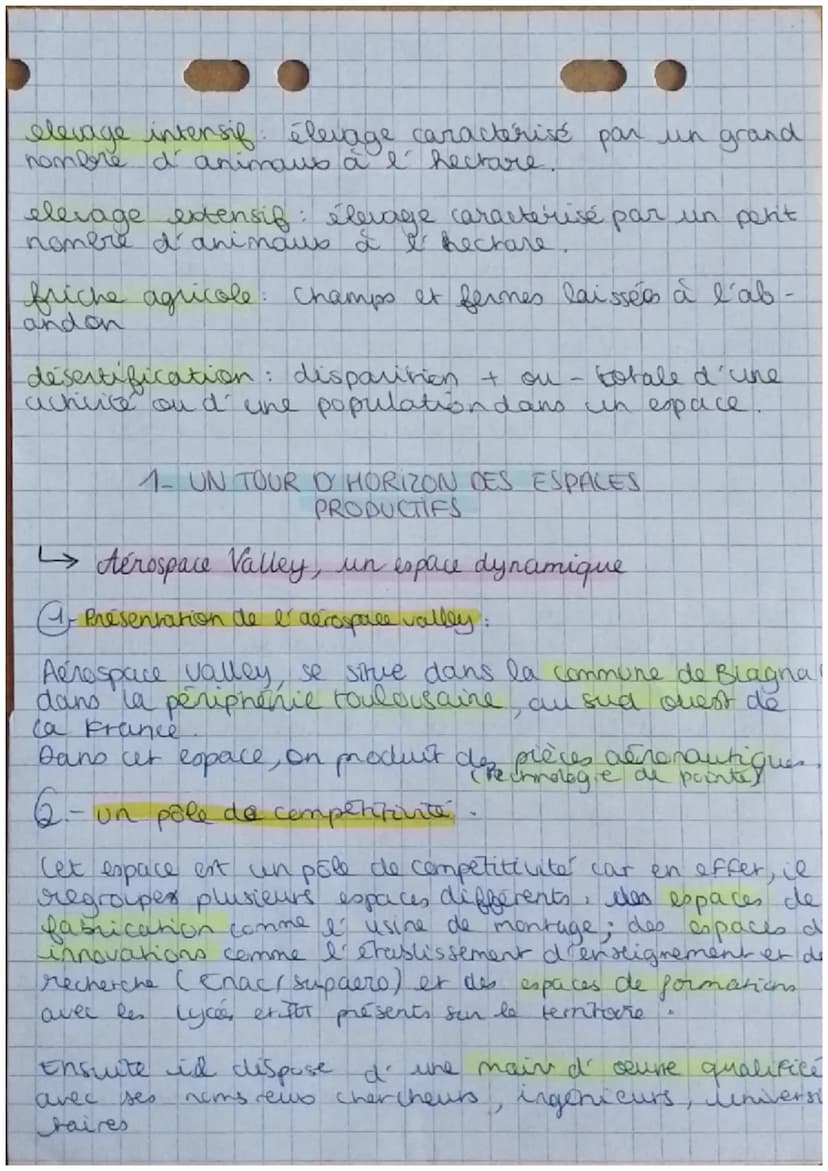 elevage intensif : élevage caractérisé par un grand
nombre d'animaux à l'hectare.
elevage extensif : élevage caractérisé par un petit
nombre d'animaux à l'hectare.
friche agricole : champs et fermes laissées à l'ab-
andon
désertification : disparition + ou - totale d'une
activité ou d'une population dans un espace.
1- UN TOUR D'HORIZON DES ESPACES
PRODUCTIFS
↳ Aérospace Valley, un espace dynamique
1- Présentation de l'aérospace valley :
Aérospace valley, se situe dans la commune de Blagna
dans la périphérie toulousaine, au sud ouest de
la France.
Dans cet espace, on produit des pièces aéronautiques.
(technologie de pointe)
2.- un pôle de compétitivité.
Cet espace est un pôle de compétitivité car en effet, il
regroupe plusieurs espaces différents, des espaces de
fabrication comme l'usine de montage; des espaces d
innovations comme l'établissement d'enseignement et de
recherche (Enac/supaero) et des espaces de formations
avec les lycées et IUT présents sur le territoire.
Ensuite il dispose d'une main d'œuvre qualifié
avec ses nombreux chercheurs, ingénieurs, universi
taires